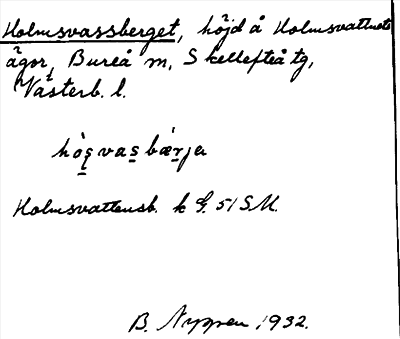 Holmsvassberget, höjd å Holmsvattnets
ägor, Bureå m, Skellefteå tg,
Västerb. l.
Holmsvattensb. k G. 51 SM.
B. Nyppen 1932.